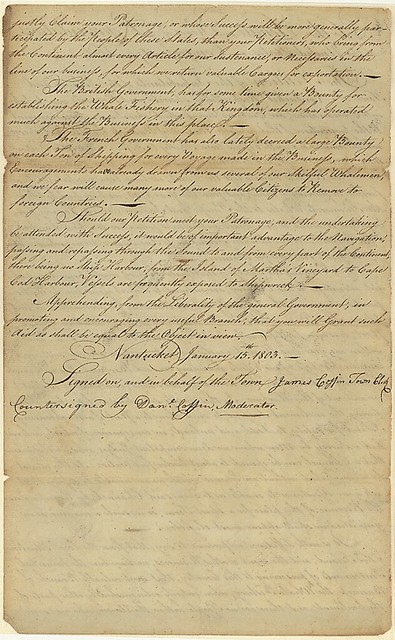 justly Claim your Patronage, or whose Success will be more generally par-
ticipated by the People of these States, than your Petitioners, who bring from
the Continent almost every Article for our Sustenance, or Necessaries in the
line of our business, for which we return valuable Cargoes for exportation.
The British Government, has for some time given a Bounty for
establishing the Whale Fishery in that Kingdom, which has operated
much against the Business in this place.
The French Government has also lately decreed a large Bounty
on each Ton of Shipping for every Voyage made in the Business, which
Encouragements have already drawn from us several of our Skilful Whalemen
and we fear will cause many more of our valuable Citizens to Remove to
foreign Countries.
Should our Petition meet your Patronage, and the undertaking
be attended with Success, it would be of important advantage to the Navigation,
passing and repassing through the Sound to and from every part of the Continent,
there being no Ship Harbour, from the Island of Martha's Vineyard to Cape
Cod Harbour, Vessels are frequently exposed to Shipwreck.
Apprehending, from the Liberality of the general Government, in
promoting and encouraging every useful Branch, that you will Grant such
Aid as shall be equal to the Object in view.
Nantucket January 15th. 1803.
Signed on, and in behalf of the Town James Coffin Town Clerk
Countersigned by Danl. Coffin, Moderator